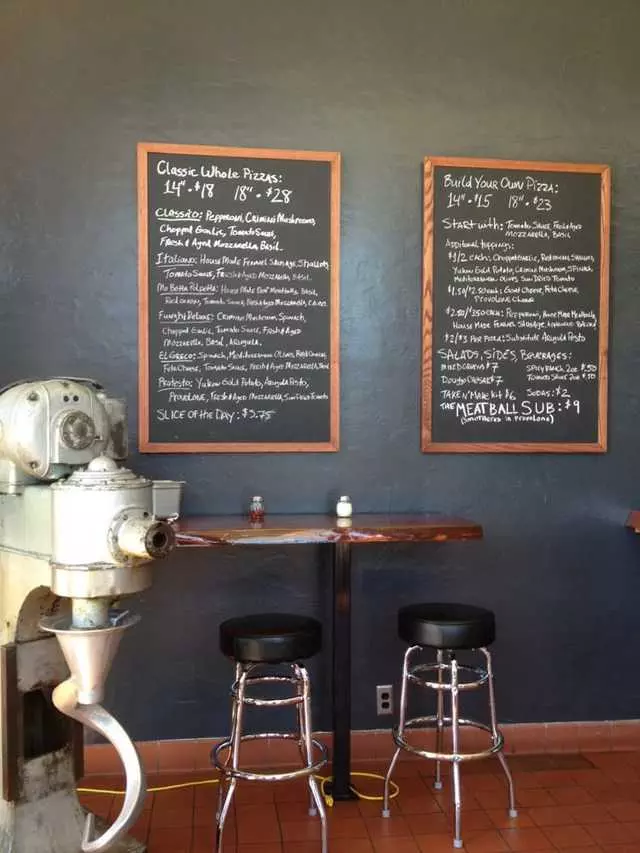 Classic Whole Pizzas:
14"•$18 18"•$28
Classico: Pepperoni, Crimini Mushrooms,
Chopped Garlic, Tomato Sauce,
Fresh & Aged Mozzarella, Basil
Italiano: House Made Fennel Sausage, Shallots,
Tomato Sauce, Fresh & Aged Mozzarella, Basil
Mo Betta Polpetta: House Made Beef Meatballs, Basil,
Red Onions, Tomato Sauce, Fresh & Aged Mozzarella,
Funghi Deluxe: Crimini Mushroom, Spinach,
Chopped Garlic, Tomato Sauce, Fresh & Aged
Mozzarella, Basil, Arugula.
El Greco: Spinach, Mediterranean Olives, Red Onions,
Feta Cheese, Tomato Sauce, Fresh & Aged Mozzarella, Basil
Protesto: Yukon Gold Potato, Arugula Pesto,
Provolone, Fresh & Aged Mozzarella, Sun Dried Tomato
Slice of the Day: $3.75
Build Your Own Pizza:
14"•$15 18"•$23
Start with: Tomato Sauce, Fresh & Aged
Mozzarella, Basil
Additional toppings:
$1/2 each: Chopped Garlic, Red Onions, Shallots,
Yukon Gold Potato, Crimini Mushroom, Spinach,
Mediterranean Olives, Sun Dried Tomato
$1.50/$2.50 each: Goat Cheese, Feta Cheese,
Provolone Cheese
$2.50/$3.50 each: Pepperoni, Home Made Meatballs,
House Made Fennel Sausage,
$2/$3 Per Pizza: Substitute Arugula Pesto
Salads, Sides, Beverages:
Mixed Greens $7 Spicy Ranch 2oz $.50
Doughy Caesar $7 Tomato Sauce 2oz $.50
Take N' Make Kit $6 Sodas: $2
The Meatball Sub: $9
(Smothered in Provolone)